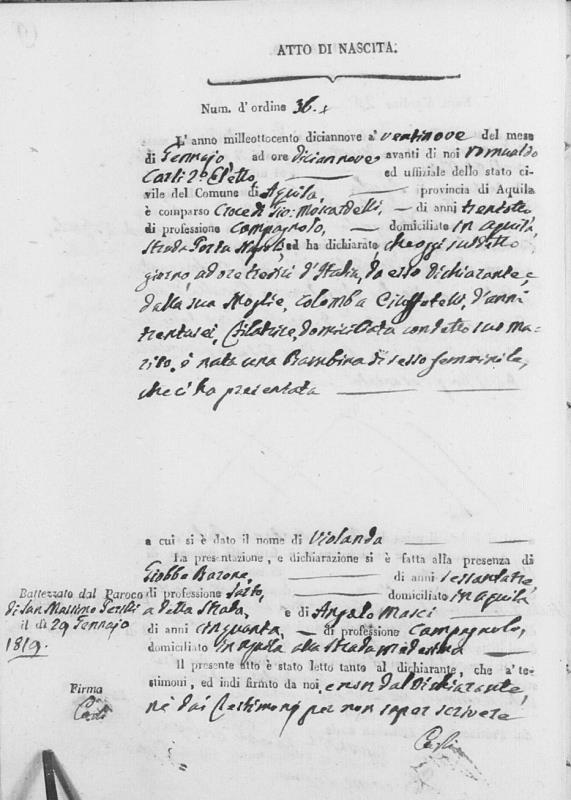 ATTO DI NASCITA.
Num. d'ordine 36.
L'anno milleottocento diciannove a' ventinove del mese
di Gennajo ad ore diciannove avanti di noi Romualdo
Carli 2º Eletto ed uffiziale dello stato ci-
vile del Comune di Aquila, provincia di Aquila
è comparso Croce di Gio: Moscardelli, di anni trentotto
di professione Campagnolo, domiciliato in Aquila
Strada Porta Napoli, ed ha dichiarato, che oggi suddetto
giorno, ad ore tredici d'Italia, da esso dichiarante, e
dalla sua Moglie, Colomba d'anni
trentasei, Filatrice, domiciliata con detto suo Ma-
rito, è nata una Bambina di sesso femminile,
che ci ha presentata
a cui si è dato il nome di Violanda
La presentazione, e dichiarazione si è fatta alla presenza di
Giobbe Barone, di anni sessantatre
di professione Sarto, domiciliato in Aquila
a detta Strada, e di Angelo Masci
di anni cinquanta, di professione Campagnolo,
domiciliato in Aquila alla strada medesima
Il presente atto è stato letto tanto al dichiarante, che a' te-
stimonj, ed indi firmato da noi, e non dal Dichiarante,
nè dai Testimonj per non saper scrivere
Carli
Battezzato dal Paroco
di San Massimo
il dì 29 Gennajo
1819.
Firma
Carli